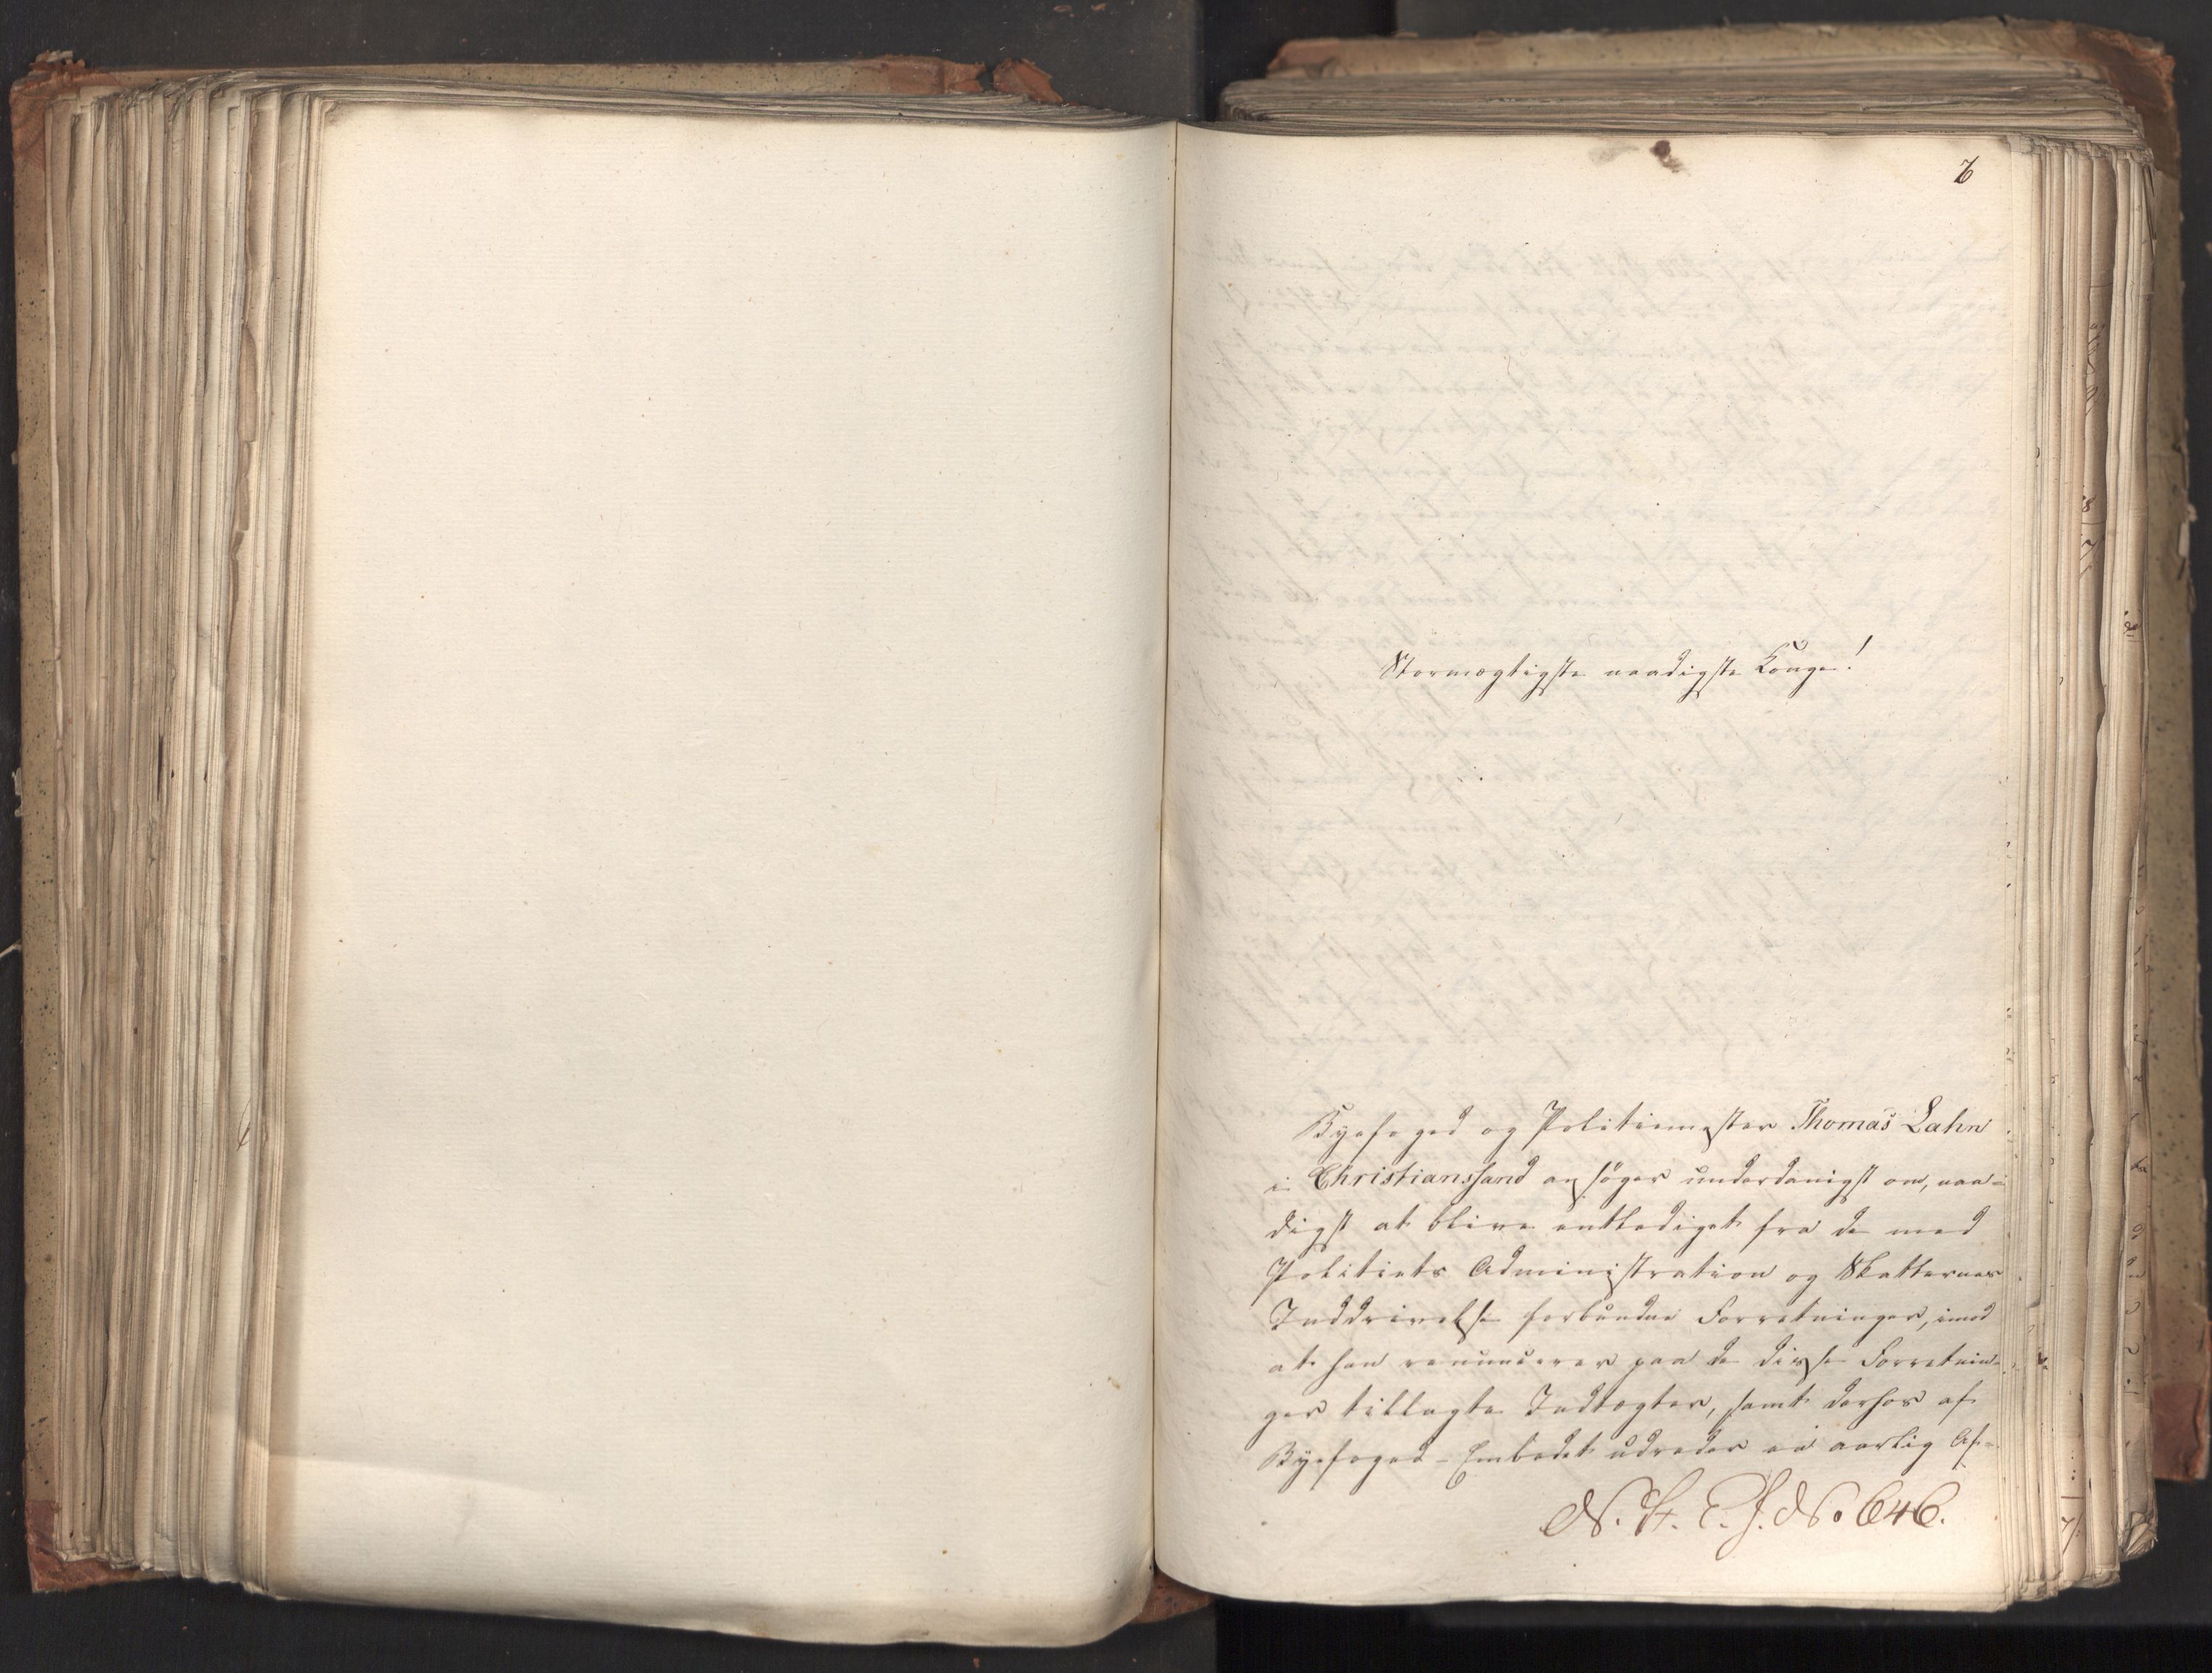 Stormægtigste naadigste Konge!
Byefoged og Politiemester Thomas Lahn
i Christianssand ansøger underdanigst om, naa-
digst at blive entlediget fra de med
Politiets Administration og Skatternes
Inddrivelse forbundne Forretninger, imod
at han renuncerer paa de disse Forretnin-
ger tillagte Indtægter, samt derhos af
Byefoged-Embedet udreder en aarlig Af-
N. St. C. J. N. 646.